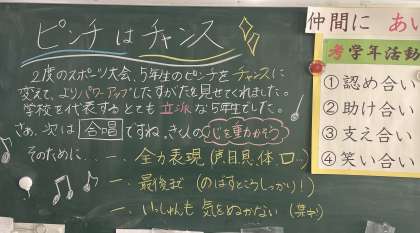 ピンチはチャンス
2度のスポーツ大会、5年生のピンチをチャンスに
変えて、よりパワーアップしたすがたを見せてくれました。
学校を代表するとても立派な5年生でした。
さぁ、次は合唱ですね。きく人の心を重かそう
そのために、
一、全力表現(顔目具体口‥)
一、最後まで(のばすところしっかり!)
一、いっしゅんも気をぬかない(集中)
仲間に あい
考学年活動
①認め合い
②助け合い
③支え合い
④笑い合い